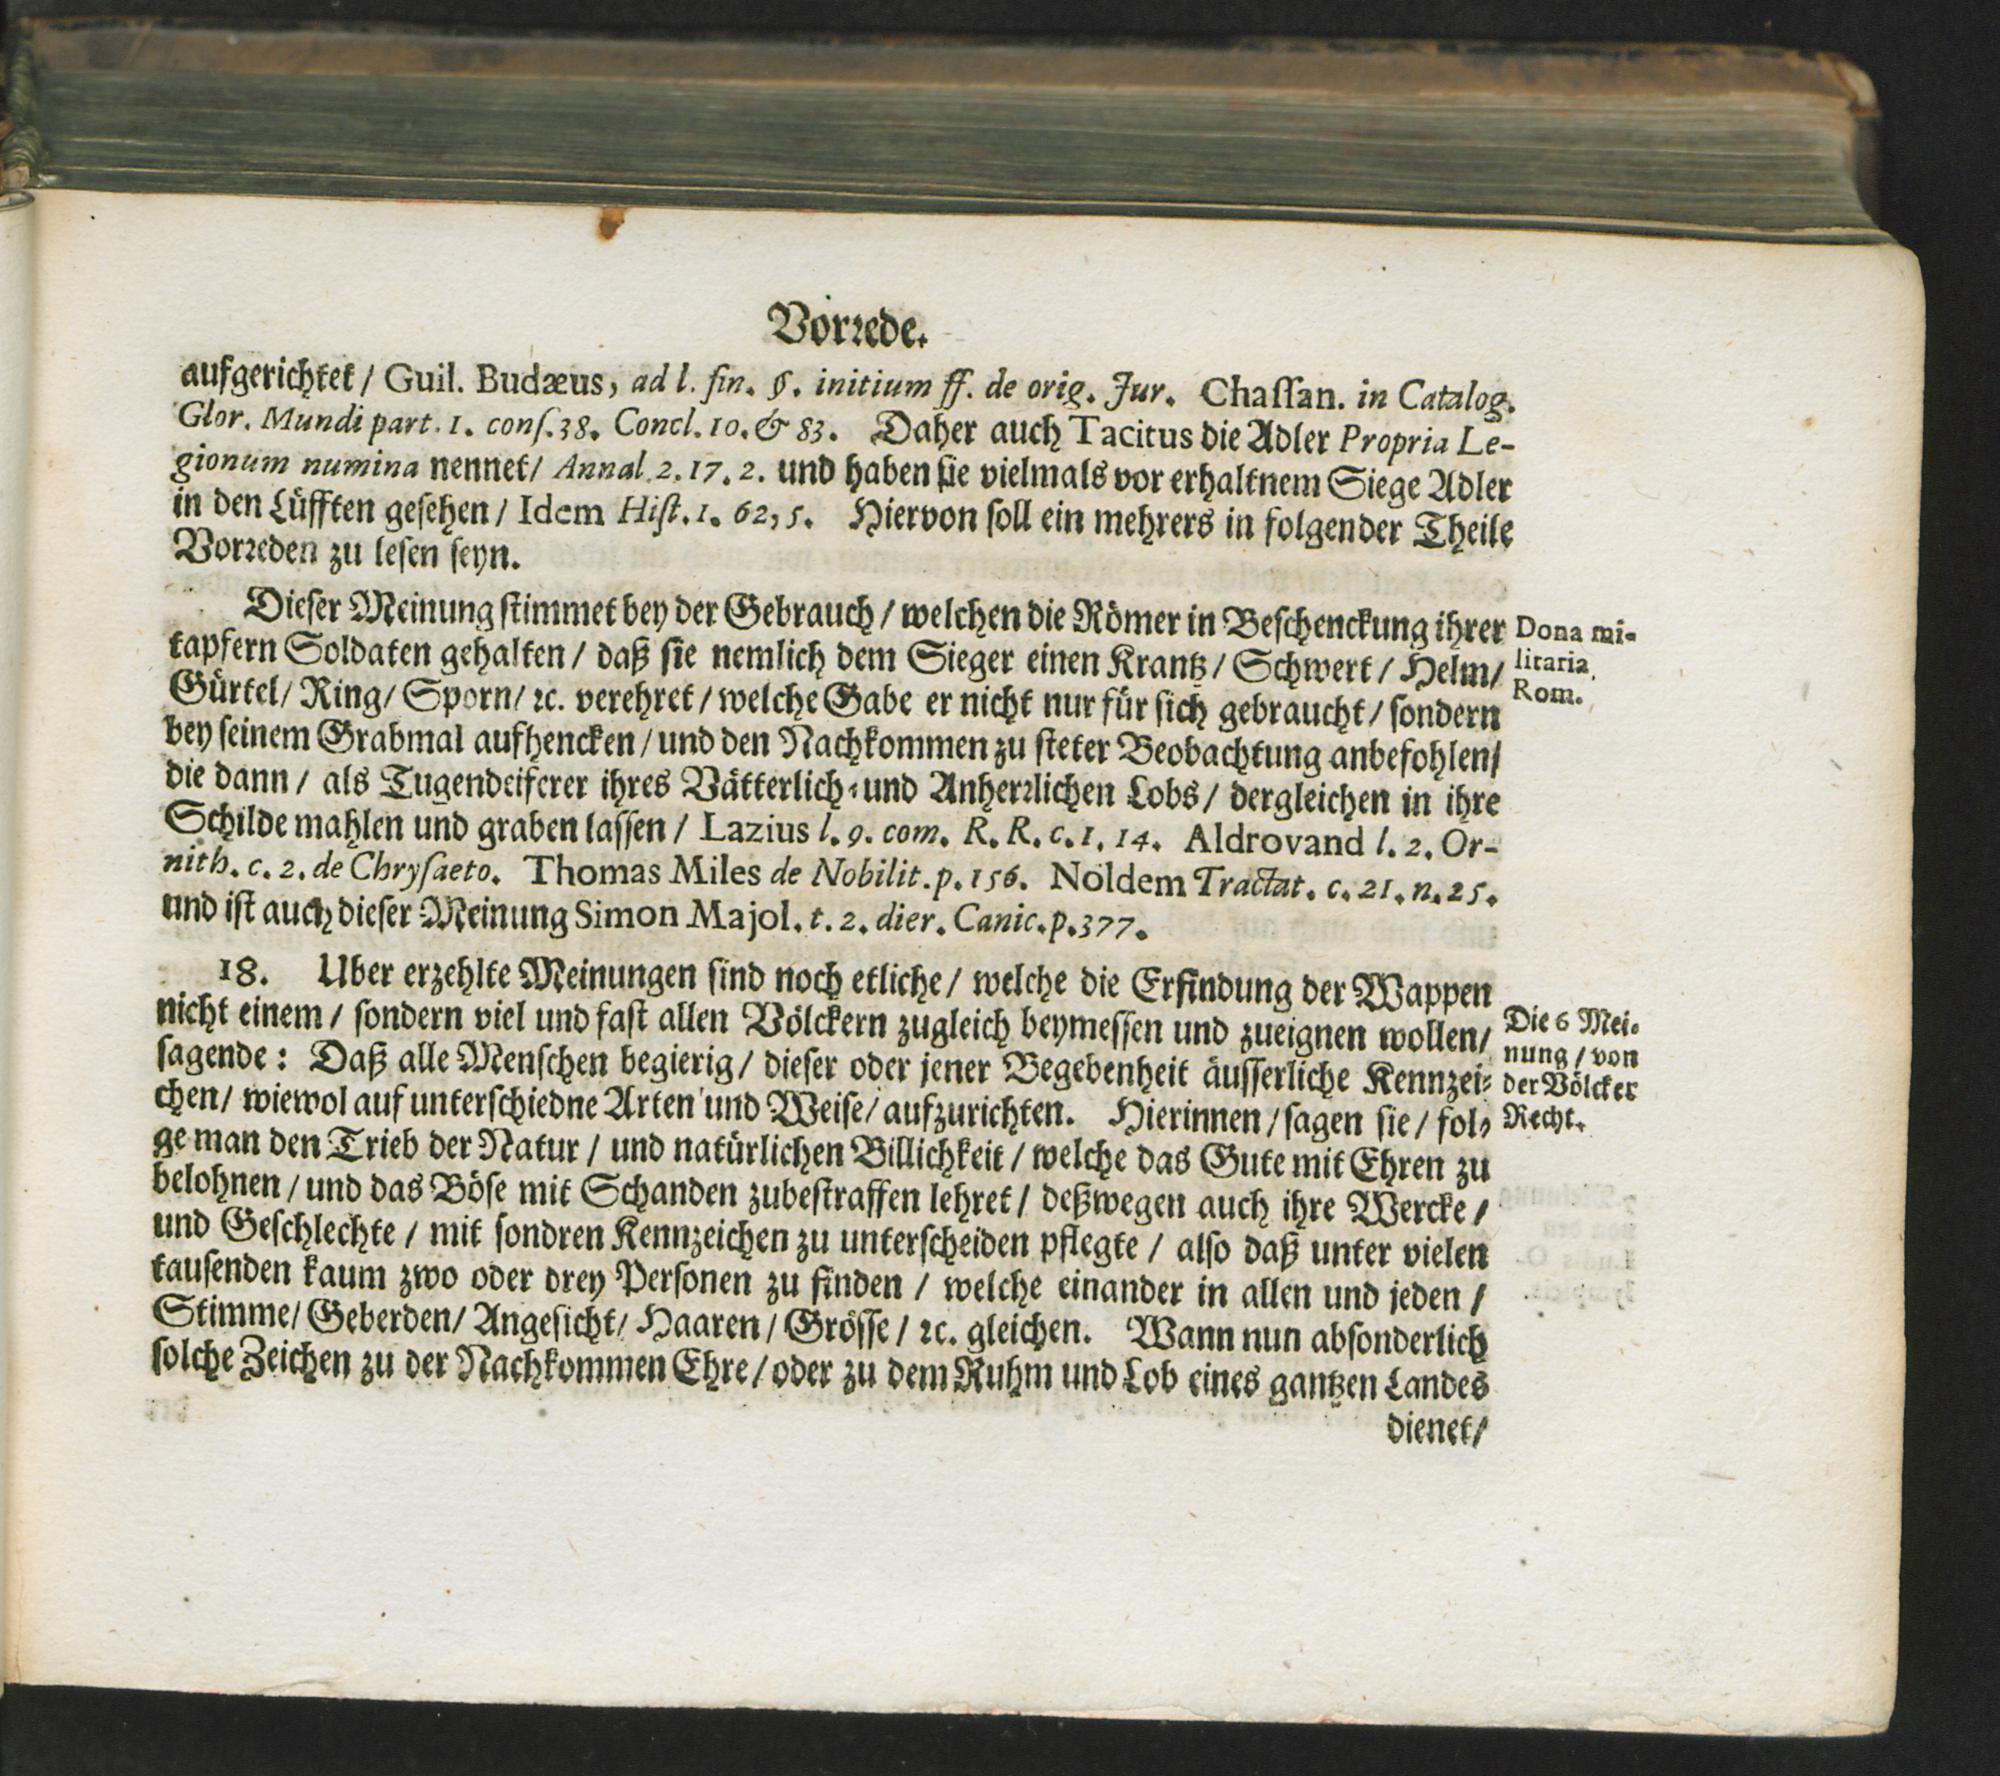 Vorrede.
aufgerichtet / Guil. Budæus, ad l. fin. §. initium ff. de orig. Jur. Chaſſan. in Catalog.
Glor. Mundi part. 1. conſ. 38. Concl. 10. & 83. Daher auch Tacitus die Adler Propria Le-
gionum numina nennet / Annal. 2. 17. 2. und haben ſie vielmals vor erhaltnem Siege Adler
in den Lüfften geſehen / Idem Hiſt. 1. 62, 5. Hiervon ſoll ein mehrers in folgender Theile
Vorreden zu leſen ſeyn.
Dieſer Meinung ſtimmet bey der Gebrauch / welchen die Römer in Beſchenckung ihrer
tapfern Soldaten gehalten / daß ſie nemlich dem Sieger einen Krantz / Schwert / Helm /
Gürtel / Ring / Sporn / ꝛc. verehret / welche Gabe er nicht nur für ſich gebraucht / ſondern
bey ſeinem Grabmal aufhencken / und den Nachkommen zu ſteter Beobachtung anbefohlen /
die dann / als Tugendeiferer ihres Vätterlich- und Anherrlichen Lobs / dergleichen in ihre
Schilde mahlen und graben laſſen / Lazius l. 9. com. R. R. c. 1. 14. Aldrovand l. 2. Or-
nith. c. 2. de Chryſaeto. Thomas Miles de Nobilit. p. 156. Nöldem Tractat. c. 21. n. 25.
und iſt auch dieſer Meinung Simon Majol. t. 2. dier. Canic. p. 377.
Dona mi-
litaria
Rom.
18. Uber erzehlte Meinungen ſind noch etliche / welche die Erfindung der Wappen
nicht einem / ſondern viel und faſt allen Völckern zugleich beymeſſen und zueignen wollen /
ſagende: Daß alle Menſchen begierig / dieſer oder jener Begebenheit äuſſerliche Kennzei-
chen / wiewol auf unterſchiedne Arten und Weiſe / aufzurichten. Hierinnen / ſagen ſie / fol-
ge man den Trieb der Natur / und natürlichen Billichkeit / welche das Gute mit Ehren zu
belohnen / und das Böſe mit Schanden zubeſtraffen lehret / deßwegen auch ihre Wercke /
und Geſchlechte / mit ſondren Kennzeichen zu unterſcheiden pflegte / alſo daß unter vielen
tauſenden kaum zwo oder drey Perſonen zu finden / welche einander in allen und jeden /
Stimme / Geberden / Angeſicht / Haaren / Gröſſe / ꝛc. gleichen. Wann nun abſonderlich
ſolche Zeichen zu der Nachkommen Ehre / oder zu dem Ruhm und Lob eines gantzen Landes
dienet /
Die 6 Mei-
nung / von
der Völcker
Recht.